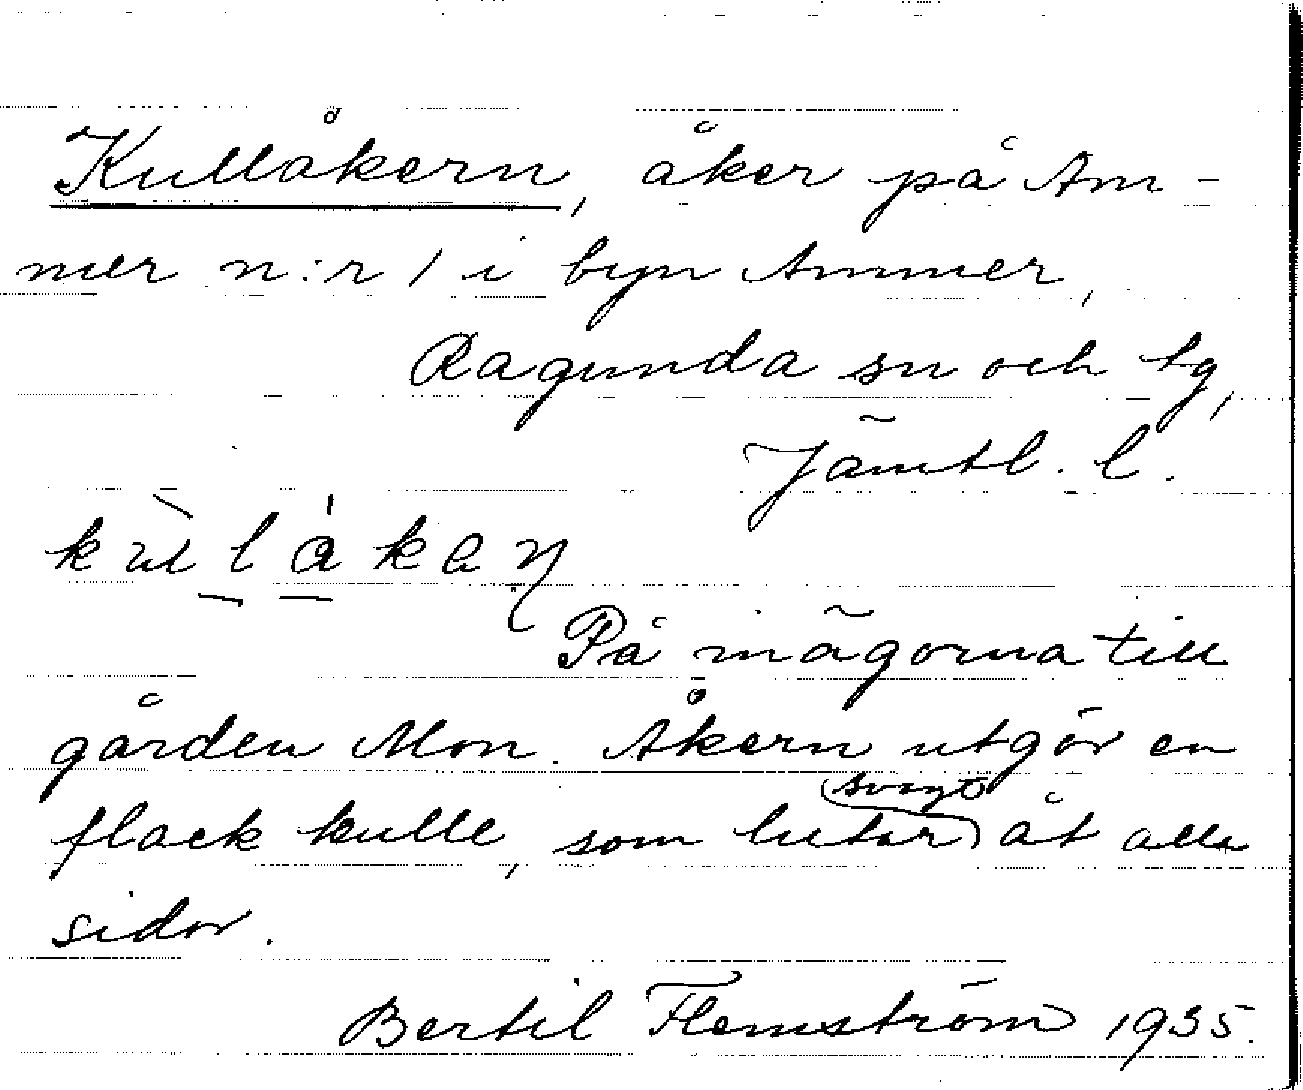 Kullåkern, åker på Am-
mer n:r 1 i byn Ammer,
Ragunda sn och tg,
Jämtl. l.
På inägorna till
gården Mon. Åkern utgör en
flack kulle, som lutar svagt åt alla
sidor.
Bertil Flemström 1935.